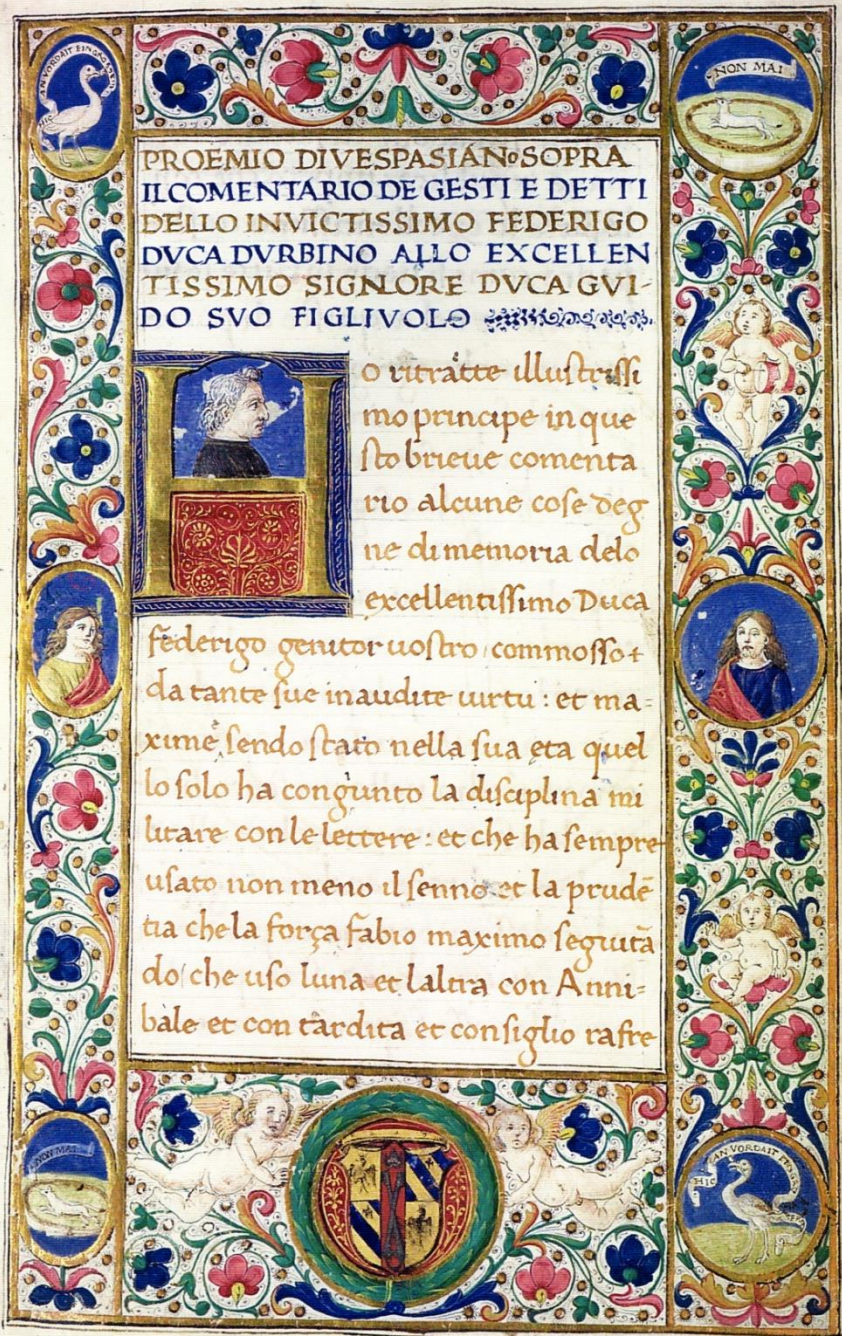 NON MAI
PROEMIO DI VESPASIANO SOPRA
IL COMENTARIO DE GESTI E DETTI
DELLO INVICTISSIMO FEDERIGO
DVCA DVRBINO ALLO EXCELLEN
TISSIMO SIGNORE DVCA GVI-
DO SVO FIGLIVOLO
Ho ritratte illustrissi
mo principe in que
sto brieue comenta
rio alcune cose deg
ne di memoria delo
excellentissimo Duca
federigo genitor uostro, commosso
da tante sue inaudite uirtu: et ma=
xime, sendo stato nella sua eta quel
lo solo ha congunto la disciplina mi
litare con le lettere: et che ha sempre
usato non meno il senno et la prudē
tia che la força fabio maximo seguitā
do che uso luna et laltra con Anni=
bale et con tardita et consiglio rafre
NON MAI
HIC AN VORDAIT